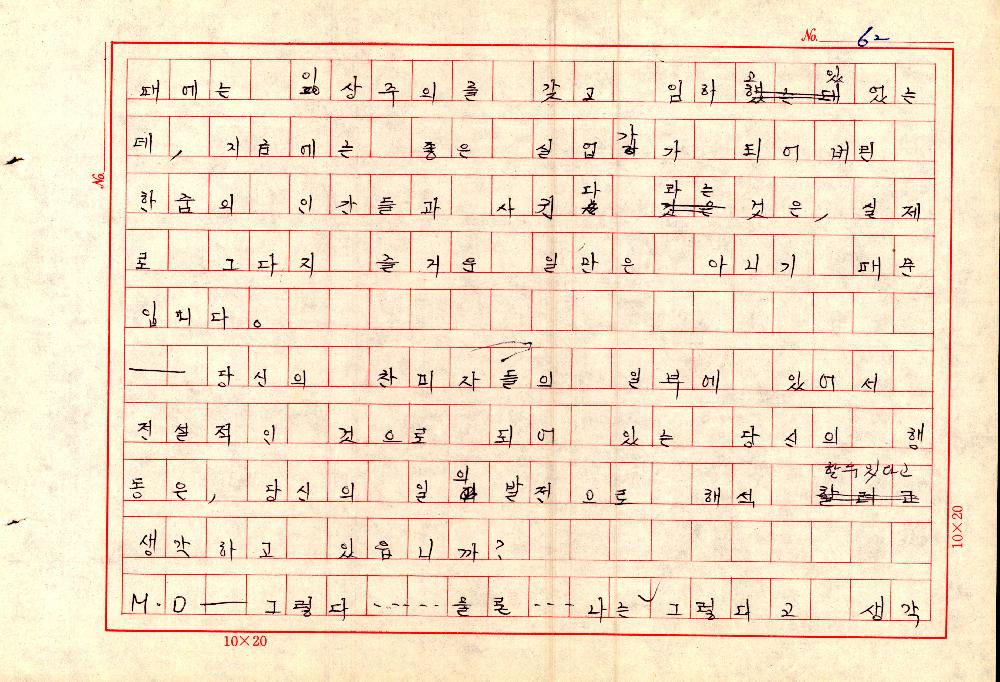 No. 62
때에는 이상주의를 갖고 임하고 있었는
데, 지금에는 좋은 실업가가 되어 버린
한줌의 인간들과 사귄다는 것은, 실제
로 그다지 즐거운 일만은 아니기 때문
입니다。
── 당신의 찬미자들의 일부에 있어서
전설적인 것으로 되어 있는 당신의 행
동은, 당신의 일의 발전으로 해석 할 수 있다고
생각하고 있읍니까?
M·D ── 그렇다 ····· 물론 ···· 나는 그렇다고 생각
No.
10×20
10×20